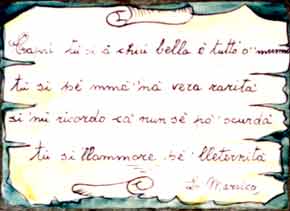 Capri tu si à chiù bella é tutt'o munno
tu si pé mmé na vera rarità
si nu ricordo cà nun sé pò scurdà
tu si llammore pé lleternità
L. Marsico